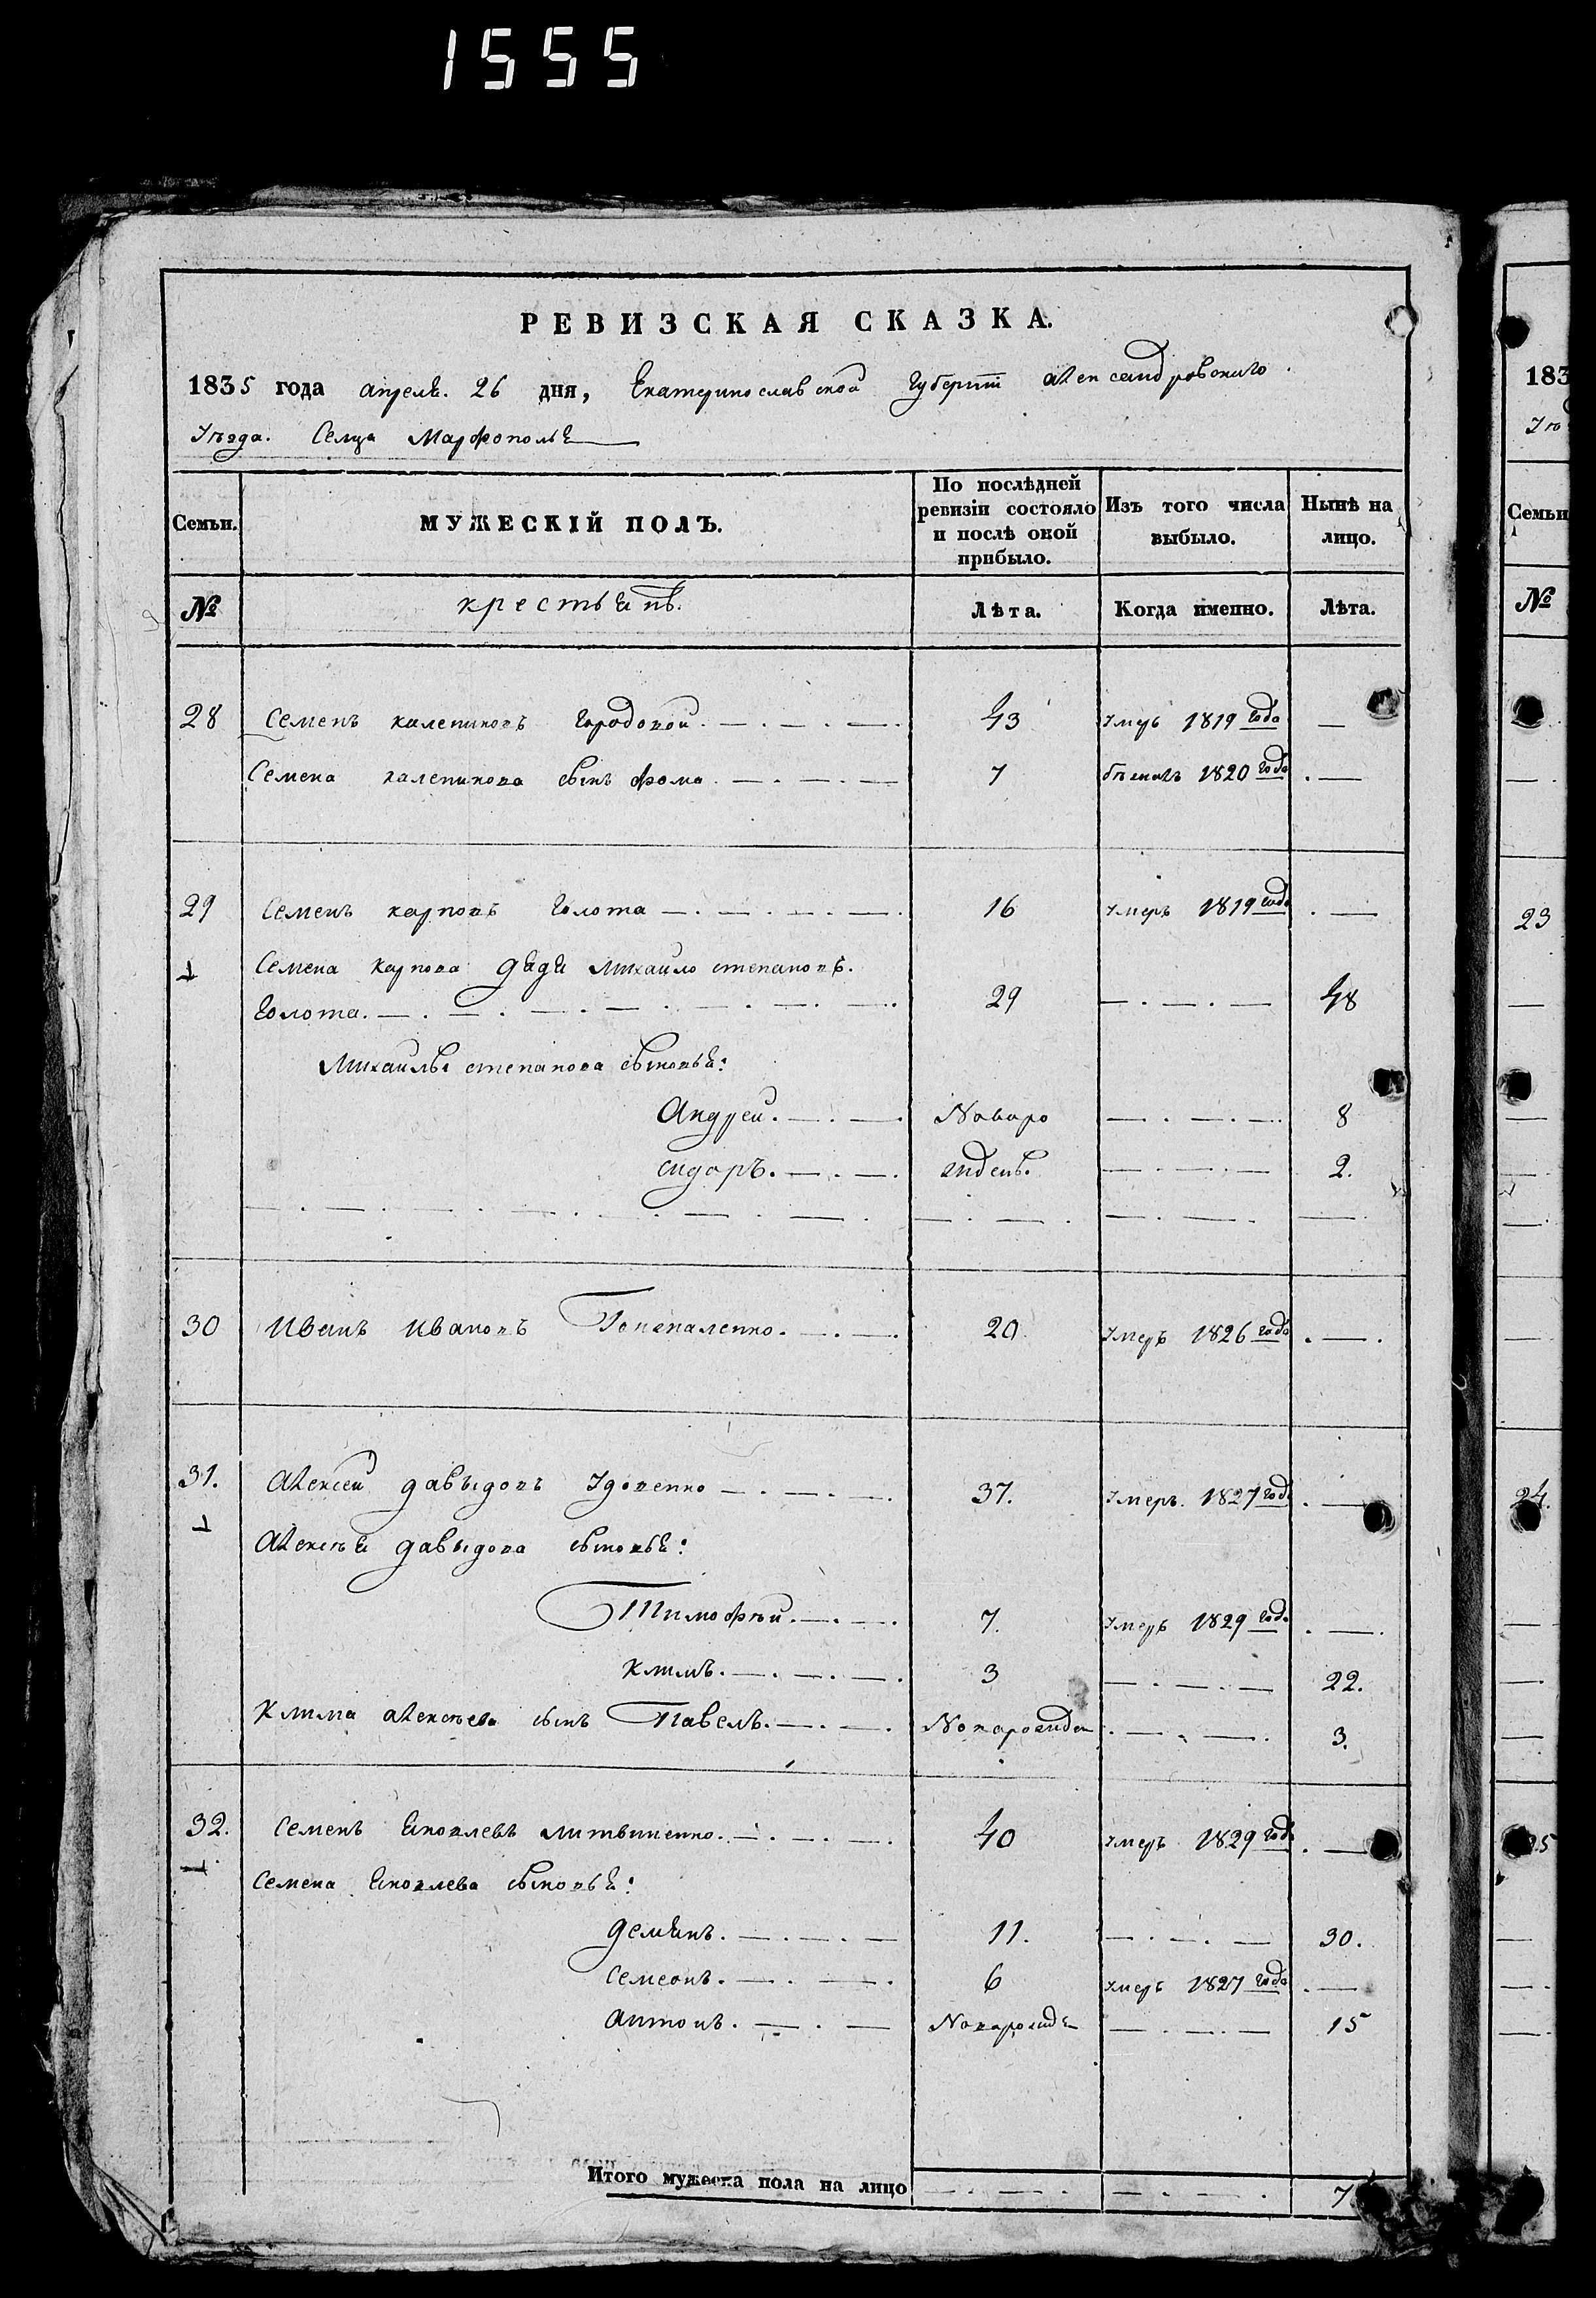 1555
РЕВИЗСКАЯ СКАЗКА.
1835 года апреля. 26 дня, Екатеринославской губернiи александровскаго
Уезда. Селца Марфополье
Семьи. МУЖЕСКIЙ ПОЛЪ. По послѣдней ревизiи состояло и послѣ оной прибыло. Изъ того числа выбыло. Нынѣ на лицо.
№ крестьянъ. Лѣта. Когда именно. Лѣта.
28 Семенъ калениковъ городовой 43 умеръ 1819 года —
Семена каленикова сынъ фома 7 1820 года —
29 Семенъ карповъ Голота 16 умеръ 1819 года —
Семена карпова дядя михайло степановъ.
Голота. 29 — 48
Михайлы степанова сыновья:
Андрей. Новоро — 8
сидоръ. жденъ. — 2.
30 иванъ ивановъ 20 умеръ 1826 года —
31. алексей давыдовъ удовенко 37. умеръ. 1827 года —
алексѣя давыдова сыновья:
Тимофѣй. 7. умеръ 1829 года —
климъ. 3 — 22.
клима алексѣева сынъ Павелъ. Новорожден — 3.
32. семенъ яковлевъ литвиненко. 40 умеръ 1829 года —
семена яковлева сыновья:
демянъ. 11. — 30.
семеонъ. 6 умеръ 1827 года —
антонъ. Новорожде — 15
Итого мужеска пола на лицо — 7
183
Семьи
№
23
24.